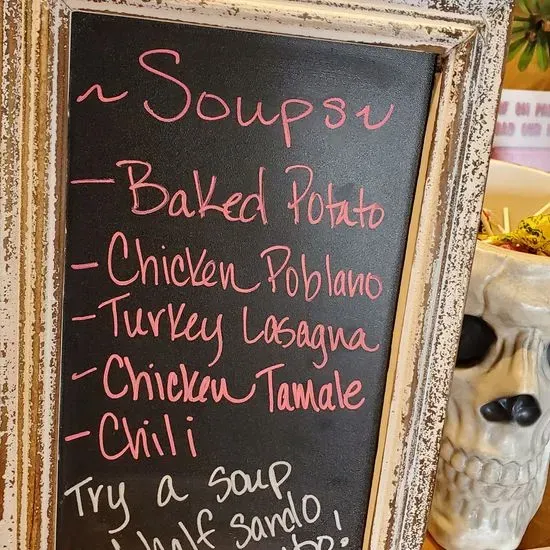 ~ Soups ~
- Baked Potato
- Chicken Poblano
- Turkey Lasagna
- Chicken Tamale
- Chili
Try a soup
half sando